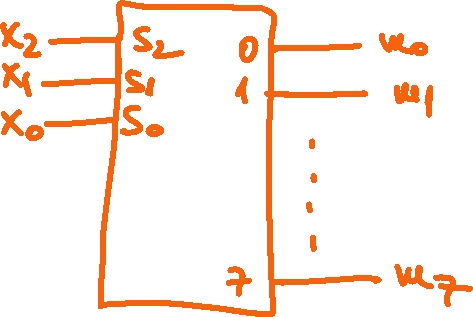 X₂ S₂ 0 m₀
X₁ S₁ 1 m₁
X₀ S₀
7 m₇